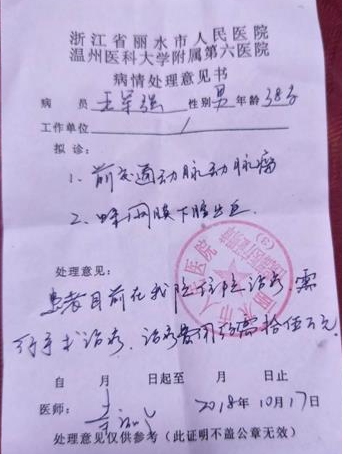 浙江省丽水市人民医院
温州医科大学附属第六医院
病情处理意见书
病 员 王军强 性别 男 年龄 38岁
工作单位 /
拟诊：
1、前交通动脉动脉瘤
2、蛛网膜下腔出血
处理意见：
患者目前在我院住院治疗，需
行手术治疗，治疗费用约需拾伍万元
自 月 日起至 月 日止
医师： 2018年10月17日
处理意见仅供参考（此证明不盖公章无效）